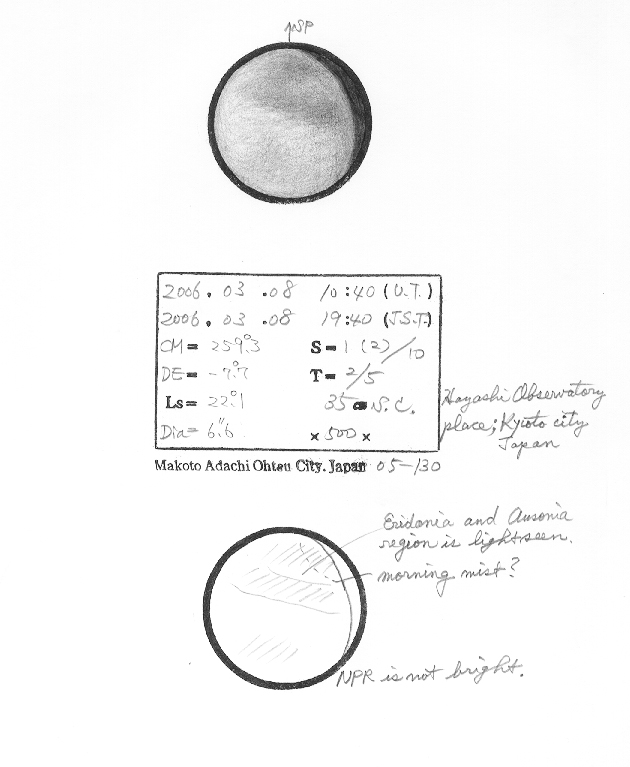 SP
2006. 03 .08 10:40 (U.T.)
2006. 03 .08 19:40 (J.S.T.)
CM= 259.°3 S= 1 (2)/10
DE= -7.°7 T= 2/5
Ls= 22.°1 35 S.C.
Dia= 6."6 × 500 ×
Hayashi Observatory
place; Kyoto city
Japan
Makoto Adachi Ohtsu City. Japan 05-130
Eridania and Ausonia
region is light seen.
morning mist?
NPR is not bright.